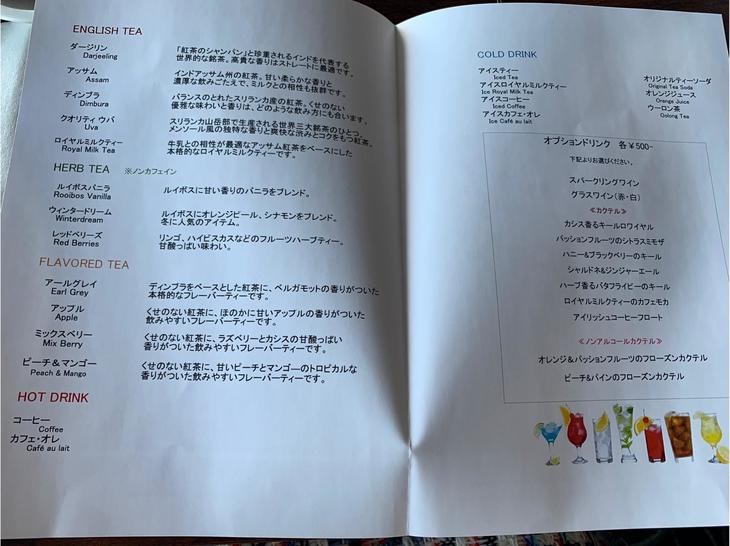 ENGLISH TEA
ダージリン
Darjeeling
「紅茶のシャンパン」と珍重されるインドを代表する
世界的な銘茶。高貴な香りはストレートに最適です。
アッサム
Assam
インドアッサム州の紅茶。甘い柔らかな香りと
濃厚な飲みごたえで、ミルクとの相性も抜群です。
ディンブラ
Dimbura
バランスのとれたスリランカ産の紅茶。くせのない
優雅な味わいと香りは、どのような飲み方にも合います。
クオリティ ウバ
Uva
スリランカ山岳部で生産される世界三大銘茶のひとつ。
メンソール風の独特な香りと爽快な渋みとコクをもつ紅茶。
ロイヤルミルクティー
Royal Milk Tea
牛乳との相性が最適なアッサム紅茶をベースにした
本格的なロイヤルミルクティーです。
HERB TEA ※ノンカフェイン
ルイボスバニラ
Rooibos Vanilla
ルイボスに甘い香りのバニラをブレンド。
ウィンタードリーム
Winterdream
ルイボスにオレンジピール、シナモンをブレンド。
冬に人気のアイテム。
レッドベリーズ
Red Berries
リンゴ、ハイビスカスなどのフルーツハーブティー。
甘酸っぱい味わい。
FLAVORED TEA
アールグレイ
Earl Grey
ディンブラをベースとした紅茶に、ベルガモットの香りがついた
本格的なフレーバーティーです。
アップル
Apple
くせのない紅茶に、ほのかに甘いアップルの香りがついた
飲みやすいフレーバーティーです。
ミックスベリー
Mix Berry
くせのない紅茶に、ラズベリーとカシスの甘酸っぱい
香りがついた飲みやすいフレーバーティーです。
ピーチ&マンゴー
Peach & Mango
くせのない紅茶に、甘いピーチとマンゴーのトロピカルな
香りがついた飲みやすいフレーバーティーです。
HOT DRINK
コーヒー
Coffee
カフェ・オレ
Café au lait
COLD DRINK
アイスティー
Iced Tea
アイスロイヤルミルクティー
Ice Royal Milk Tea
アイスコーヒー
Iced Coffee
アイスカフェ・オレ
Ice Café au lait
オリジナルティーソーダ
Original Tea Soda
オレンジジュース
Orange Juice
ウーロン茶
Oolong Tea
オプションドリンク 各¥500-
下記よりお選びください。
スパークリングワイン
グラスワイン(赤・白)
≪カクテル≫
カシス香るキールロワイヤル
パッションフルーツのシトラスミモザ
ハニー&ブラックベリーのキール
シャルドネ&ジンジャーエール
ハーブ香るバタフライピーのキール
ロイヤルミルクティーのカフェモカ
アイリッシュコーヒーフロート
≪ノンアルコールカクテル≫
オレンジ&パッションフルーツのフローズンカクテル
ピーチ&パインのフローズンカクテル